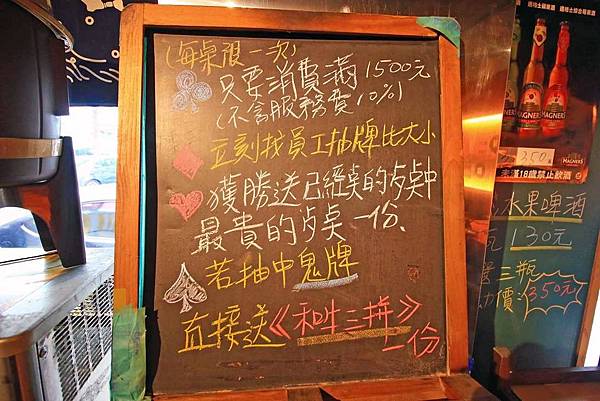 (每桌限一次)
只要消費滿1500元
(不含服務費10%)
立刻找員工抽牌比大小
獲勝送已經桌的桌中
最貴的一份.
若抽中鬼牌
直接送《和牛三拼》
一份
MAGNERS
350.
MAGNERS
未滿18歲禁止飲酒
水果啤酒
瓶 130元
三瓶
價:350元